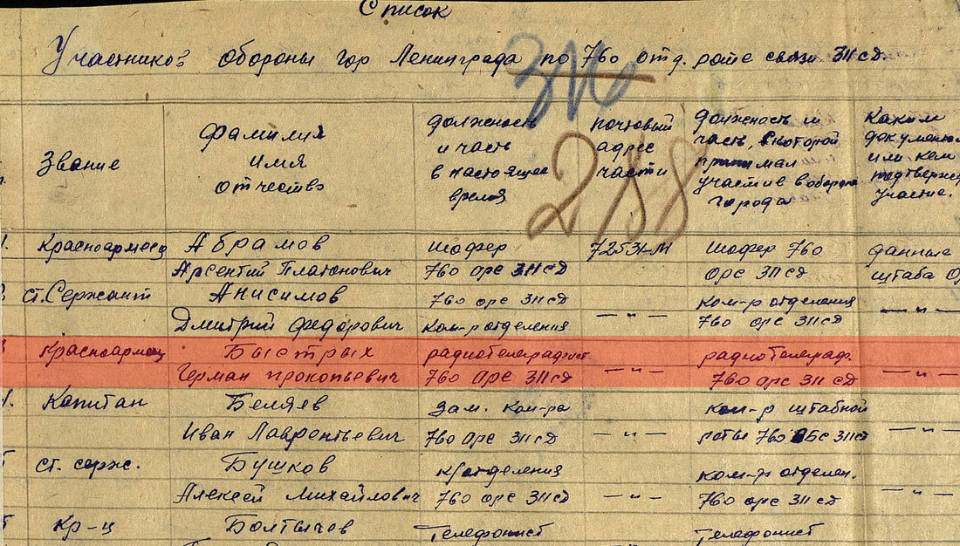 Список
Участников обороны гор Ленинграда по 760 отд. роте связи 311 сд.
Звание
фамилия
имя
отчество
должность
и часть
в настоящее
время
почтовый
адрес
части
288
должность и
часть, в которой
принимал
участие в обороне
города
Каким
или кем
участие.
1. Красноармеец Абрамов шофер 72531-М шофер 760 данные
Арсентий Платонович 760 орс 311 сд орс 311 сд штаба
ст. Сержант Анисимов 760 орс 311 сд ком-р отделения
Дмитрий Федорович ком-р отделения —"— 760 орс 311 сд —"—
3 Красноармеец Быстрых радиотелеграфист радиотелеграф.
Герман Прокопьевич 760 орс 311 сд —"— 760 орс 311 сд —"—
4. Капитан Беляев Зам. ком-ра ком-р штабной
Иван Лаврентьевич 760 орс 311 сд —"— роты 760 311 сд —"—
ст. серж. Бушков к/отделения ком-р отделен.
Алексей Михайлович 760 орс 311 сд —"— 760 орс 311 сд —"—
Кр-ц Болтычов Телефонист Телефонист